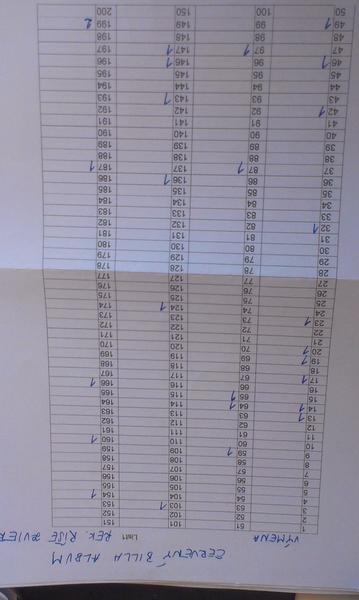 ČERVENÝ BILLA ALBUM
VÝMENA List1 ŘÍŠE
1 51 101 151
2 52 102 152
3 53 103 1 153
4 54 104 154 1
5 55 105 155
6 56 106 156
7 57 107 157
8 58 108 158
9 59 1 109 159
10 60 110 160 1
11 61 111 161
12 62 112 162
13 1 63 113 163
14 1 64 1 114 164
15 65 1 115 165
16 66 116 166 1
17 1 67 117 167
18 68 118 168
19 1 69 119 169
20 1 70 120 170
21 71 121 171
22 72 122 172
23 1 73 123 173
24 74 124 1 174
25 75 125 175
26 76 126 176
27 77 127 177
28 78 128 178
29 79 129 179
30 80 130 180
31 81 131 181
32 1 82 132 182
33 83 133 183
34 84 134 184
35 85 135 185
36 86 136 1 186
37 87 1 137 187 1
38 88 138 188
39 89 139 189
40 90 140 190
41 91 141 191
42 1 92 142 192
43 93 143 1 193
44 94 144 194
45 95 145 195
46 1 96 146 1 196
47 97 1 147 1 197
48 98 148 198
49 1 99 149 199 2
50 100 150 200